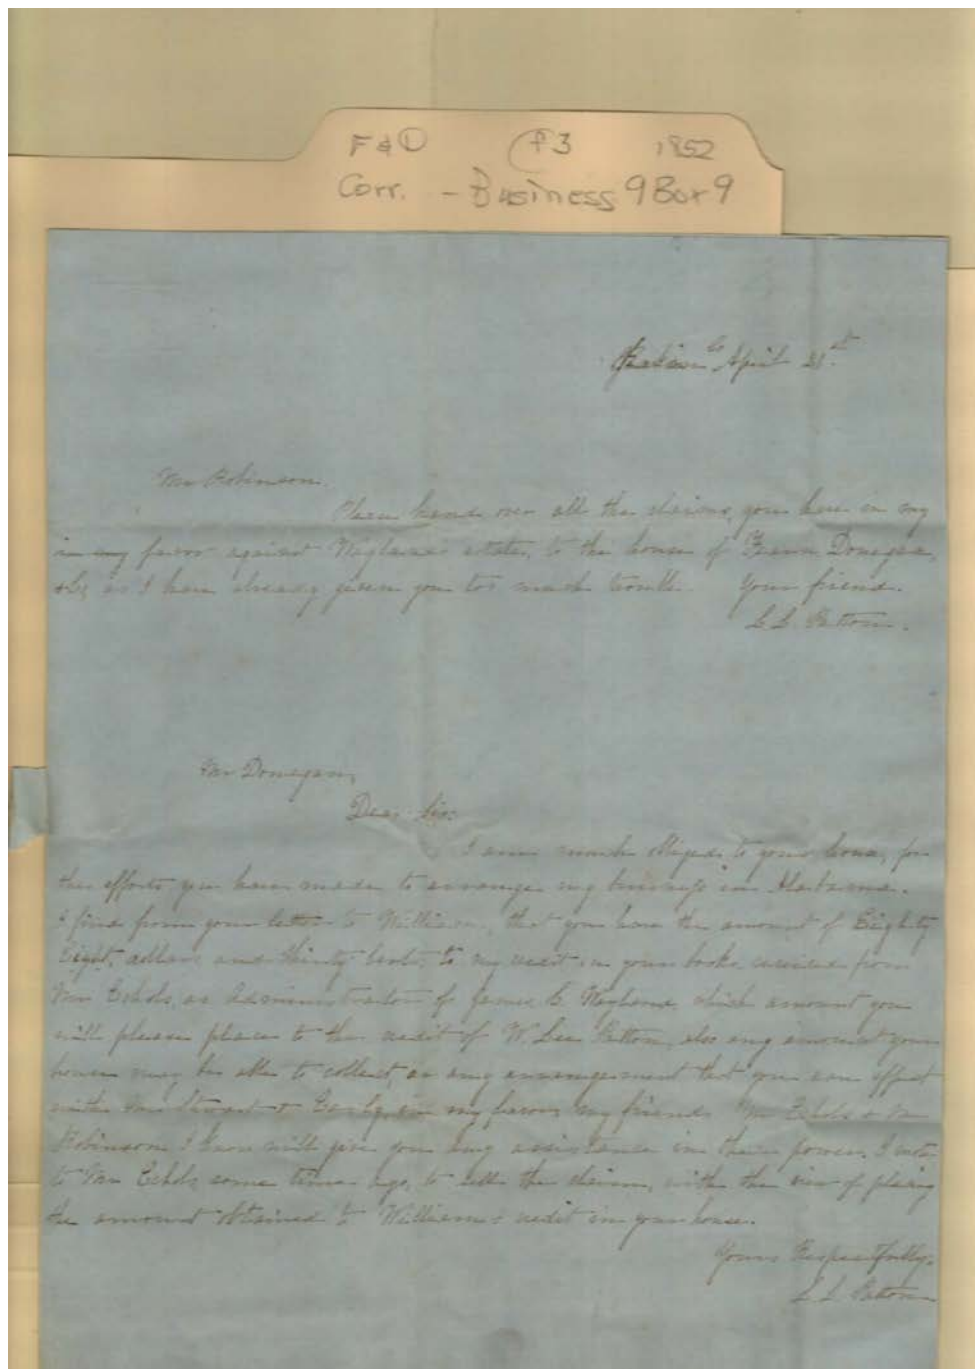 F & D f3 1852
Corr. - Business 9 Box 9
April 21st
Mr Robinson.
Please hand over all the claims, you have in my
in my favor against estate, to the house of Fearn Donegan,
&Co, as I have already given you too much trouble. Your friend.
L L Patton.
Mr Donegan,
Dear Sir
I am much obliged to your house, for
the efforts you have made to arrange my business in Alabama.
I find from your letter to William, that you have the amount of Eighty
Eight, dollars and thirty cents, to my credit in your books received from
Mr Echols, as Administrator of James which amount you
will please place to the credit of W. Lee Patton, also any amount your
house may be able to collect, or any arrangement that you can effect
with Mr Stewart & in my favor, my friends Mr Echols & Mr
Robinson I know will give you any assistance in their power. I wrote
to Mr Echols some time ago, to sell the claim, with the view of placing
the amount obtained to William's credit in your house.
Yours Respectfully.
L L Patton